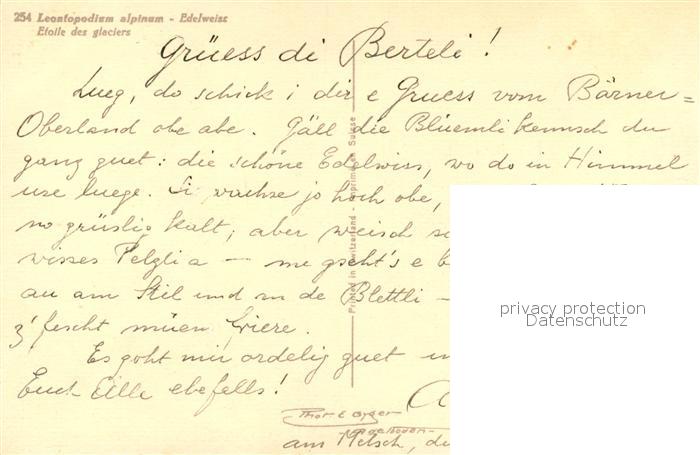 254 Leontopodium alpinum - Edelweiss
Etoile des glaciers
Grüess di Berteli!
Lueg, do schick i dir e Gruess vom Bärner=
Oberland obe abe. Gäll die Blüemli kennsch du
ganz guet: die schöne Edelwiss, wo do in Himmel
use luege. Si wachse jo höch obe,
no grüslig kalt; aber weisch
wisses Pelzli a — me gseht's e
au am Stil und an de Blettli —
z'fescht müen friere.
Es goht mir ordelig guet
Euch Alle ebefells!
Printed in Switzerland - Imprimé en Suisse
privacy protection
Datenschutz
Adelboden
am